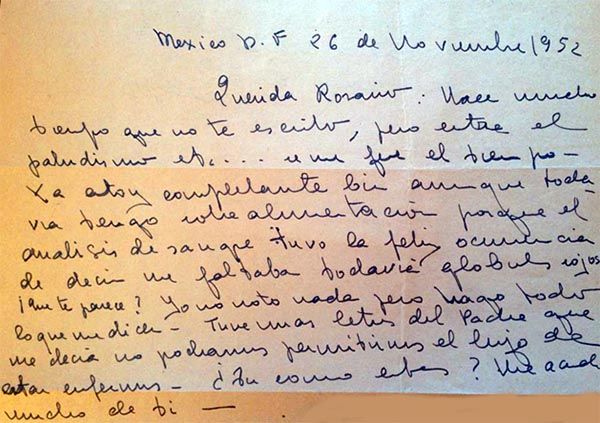 Mexico D.F 26 de Noviembre 1952
Querida Rosario. Hace mucho
tiempo que no te escribo, pero entre el
paludismo etc.... se me fue el tiempo -
Ya estoy completante bien aunque toda
via tengo sobrealimentación porque el
analisis de sangre tuvo la feliz ocurrencia
de decir me faltaba todavia globulos rojos
¡Que te parece? Yo no noto nada pero hago todo
lo que me dicen - Tuve unas letras del Padre que
me decia no podiamos permitirnos el lujo de
estar enfermos - ¿Tu como estas? Me acuerdo
mucho de ti -